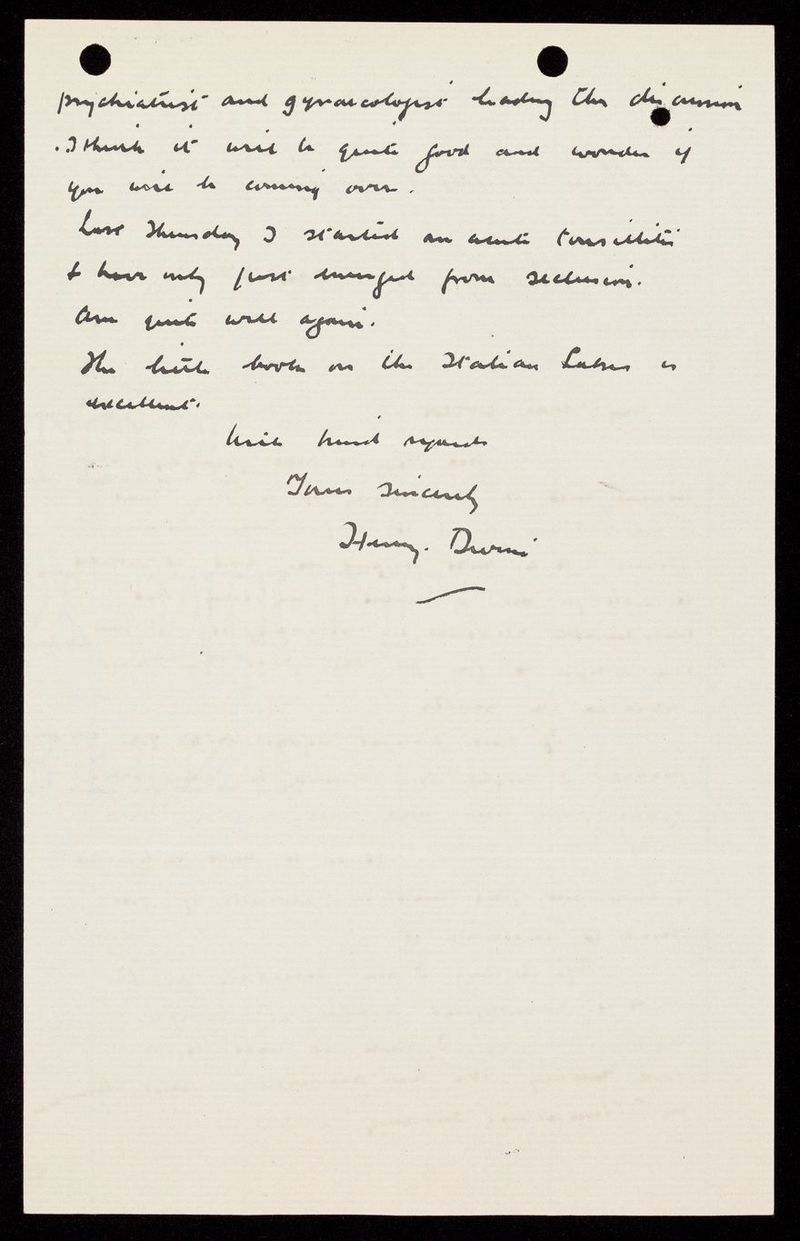 psychiatrist and gynaecologist leading the discussion
. I think it will be quite good and wonder if
you will be coming over.
Last Thursday I started an acute tonsillitis
& have only just emerged from seclusion.
Am quite well again.
The little book on the Italian Lakes is
excellent.
With kind regards
Yours sincerely
Henry.